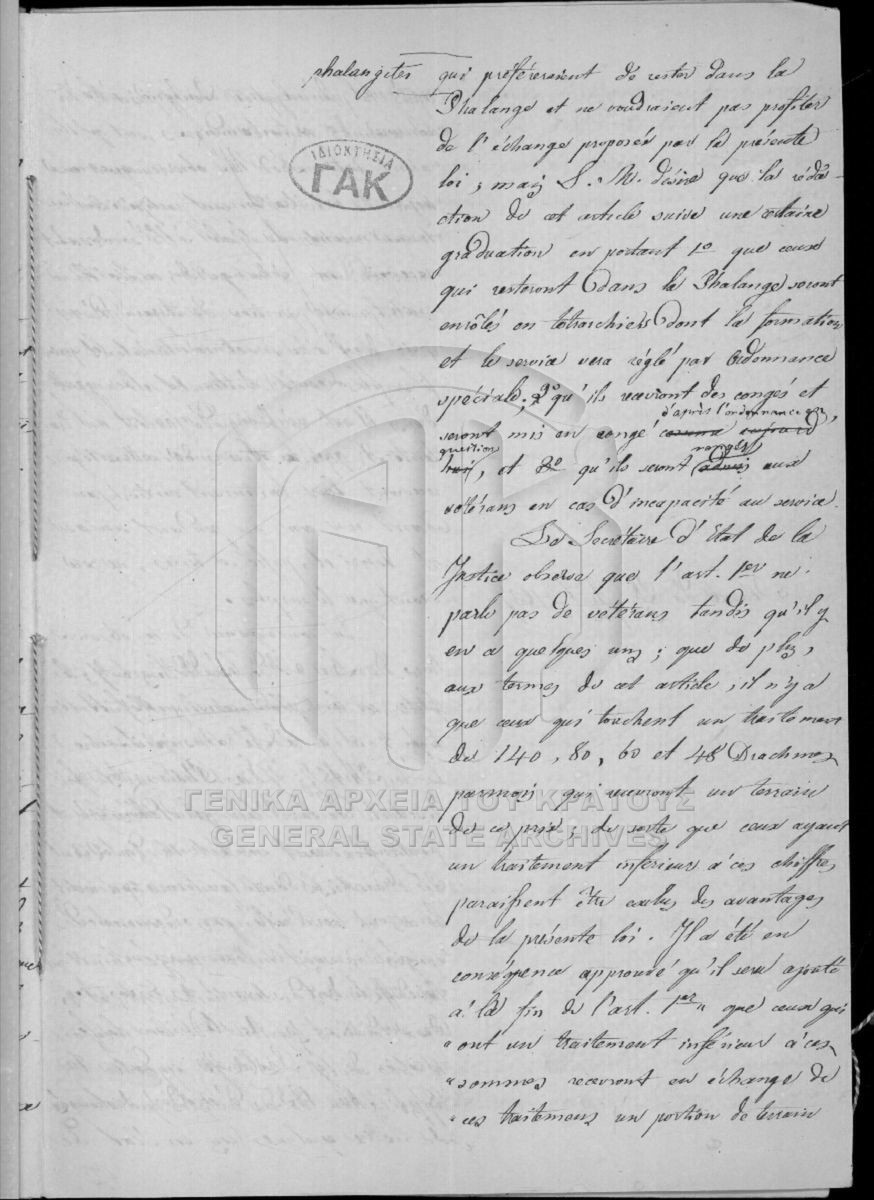 phalangites
qui préfèreraient de rester dans la
Phalange et ne voudraient pas profiter
de l'échange proposée par la présente
loi ; mais S. M. désire que la rédà-
ction de cet article suive une certaine
graduation en portant 1o que ceux
qui resteront dans la Phalange seront
enrôlés en tétrarchies dont la formation
et le service sera réglé par Ordonnance
spéciale ; 2o qu'ils recevront des congés et
d'après l'ordonnance en
seront mis en congé comme
question rangés
, et 3o qu'ils seront admis aux
vétérans en cas d'incapacité au service.
Le Secrétaire d'Etat de la
Justice observe que l'art. 1er ne
parle pas de vétérans tandis qu'il y
en a quelques uns ; que de plus,
aux termes de cet article, il n'y a
que ceux qui touchent un traitement
de 140, 80, 60 et 48 Drachmes
par mois qui recevront un terrain
de ce prix ; de sorte que ceux ayant
un traitement inférieur à ces chiffres
paraissent être exclus des avantages
de la présente loi. Il a été en
conséqence approuvé qu'il sera ajouté
à la fin de l'art. 1er " que ceux qui
" ont un traitement inférieur à ces
" sommes recevront en échange de
" ces traitemens un portion de terrain
ΙΔΙΟΚΤΗΣΙΑ
ΓΑΚ
ΓΕΝΙΚΑ ΑΡΧΕΙΑ ΤΟΥ ΚΡΑΤΟΥΣ
GENERAL STATE ARCHIVES